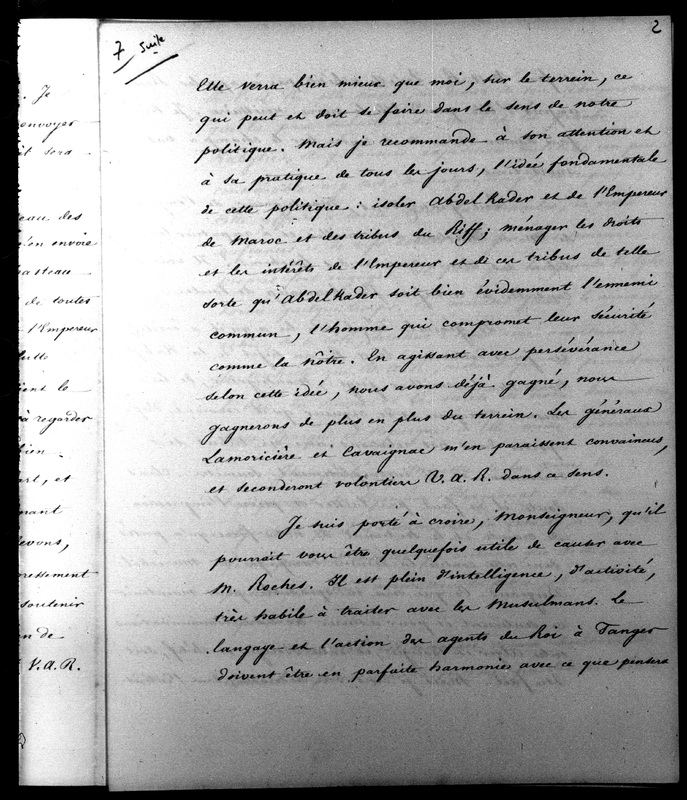 . Je
envoyer
it sera
eau des
'en envoie
de toutes
l'Empereur
ient le
à regarder
bien
ert, et
nant
evons,
soutenir
on de
V. A. R.
7 suite
2
Elle verra bien mieux que moi, sur le terrein, ce
qui peut et doit se faire dans le sens de notre
politique. Mais je recommande à son attention et
à sa pratique de tous les jours, l'idée fondamentale
de cette politique : isoler Abdel Kader et de l'Empereur
de Maroc et des tribus du Riff ; ménager les droits
et les intérêts de l'Empereur et de ces tribus de telle
sorte qu'Abdel Kader soit bien évidemment l'ennemi
commun, l'homme qui compromet leur sécurité
comme la nôtre. En agissant avec persévérance
selon cette idée, nous avons déjà gagné, nous
gagnerons de plus en plus du terrein. Les généraux
Lamoricière et Cavaignac m'en paraissent convaincus,
et seconderont volontiers V. A. R. dans ce sens.
Je suis porté à croire, Monseigneur, qu'il
pourrait vous être quelquefois utile de causer avec
M. Roches. Il est plein d'intelligence, d'activité,
très habile à traiter avec les Musulmans. Le
langage et l'action des agents du Roi à Tanger
doivent être en parfaite harmonie avec ce que pensera